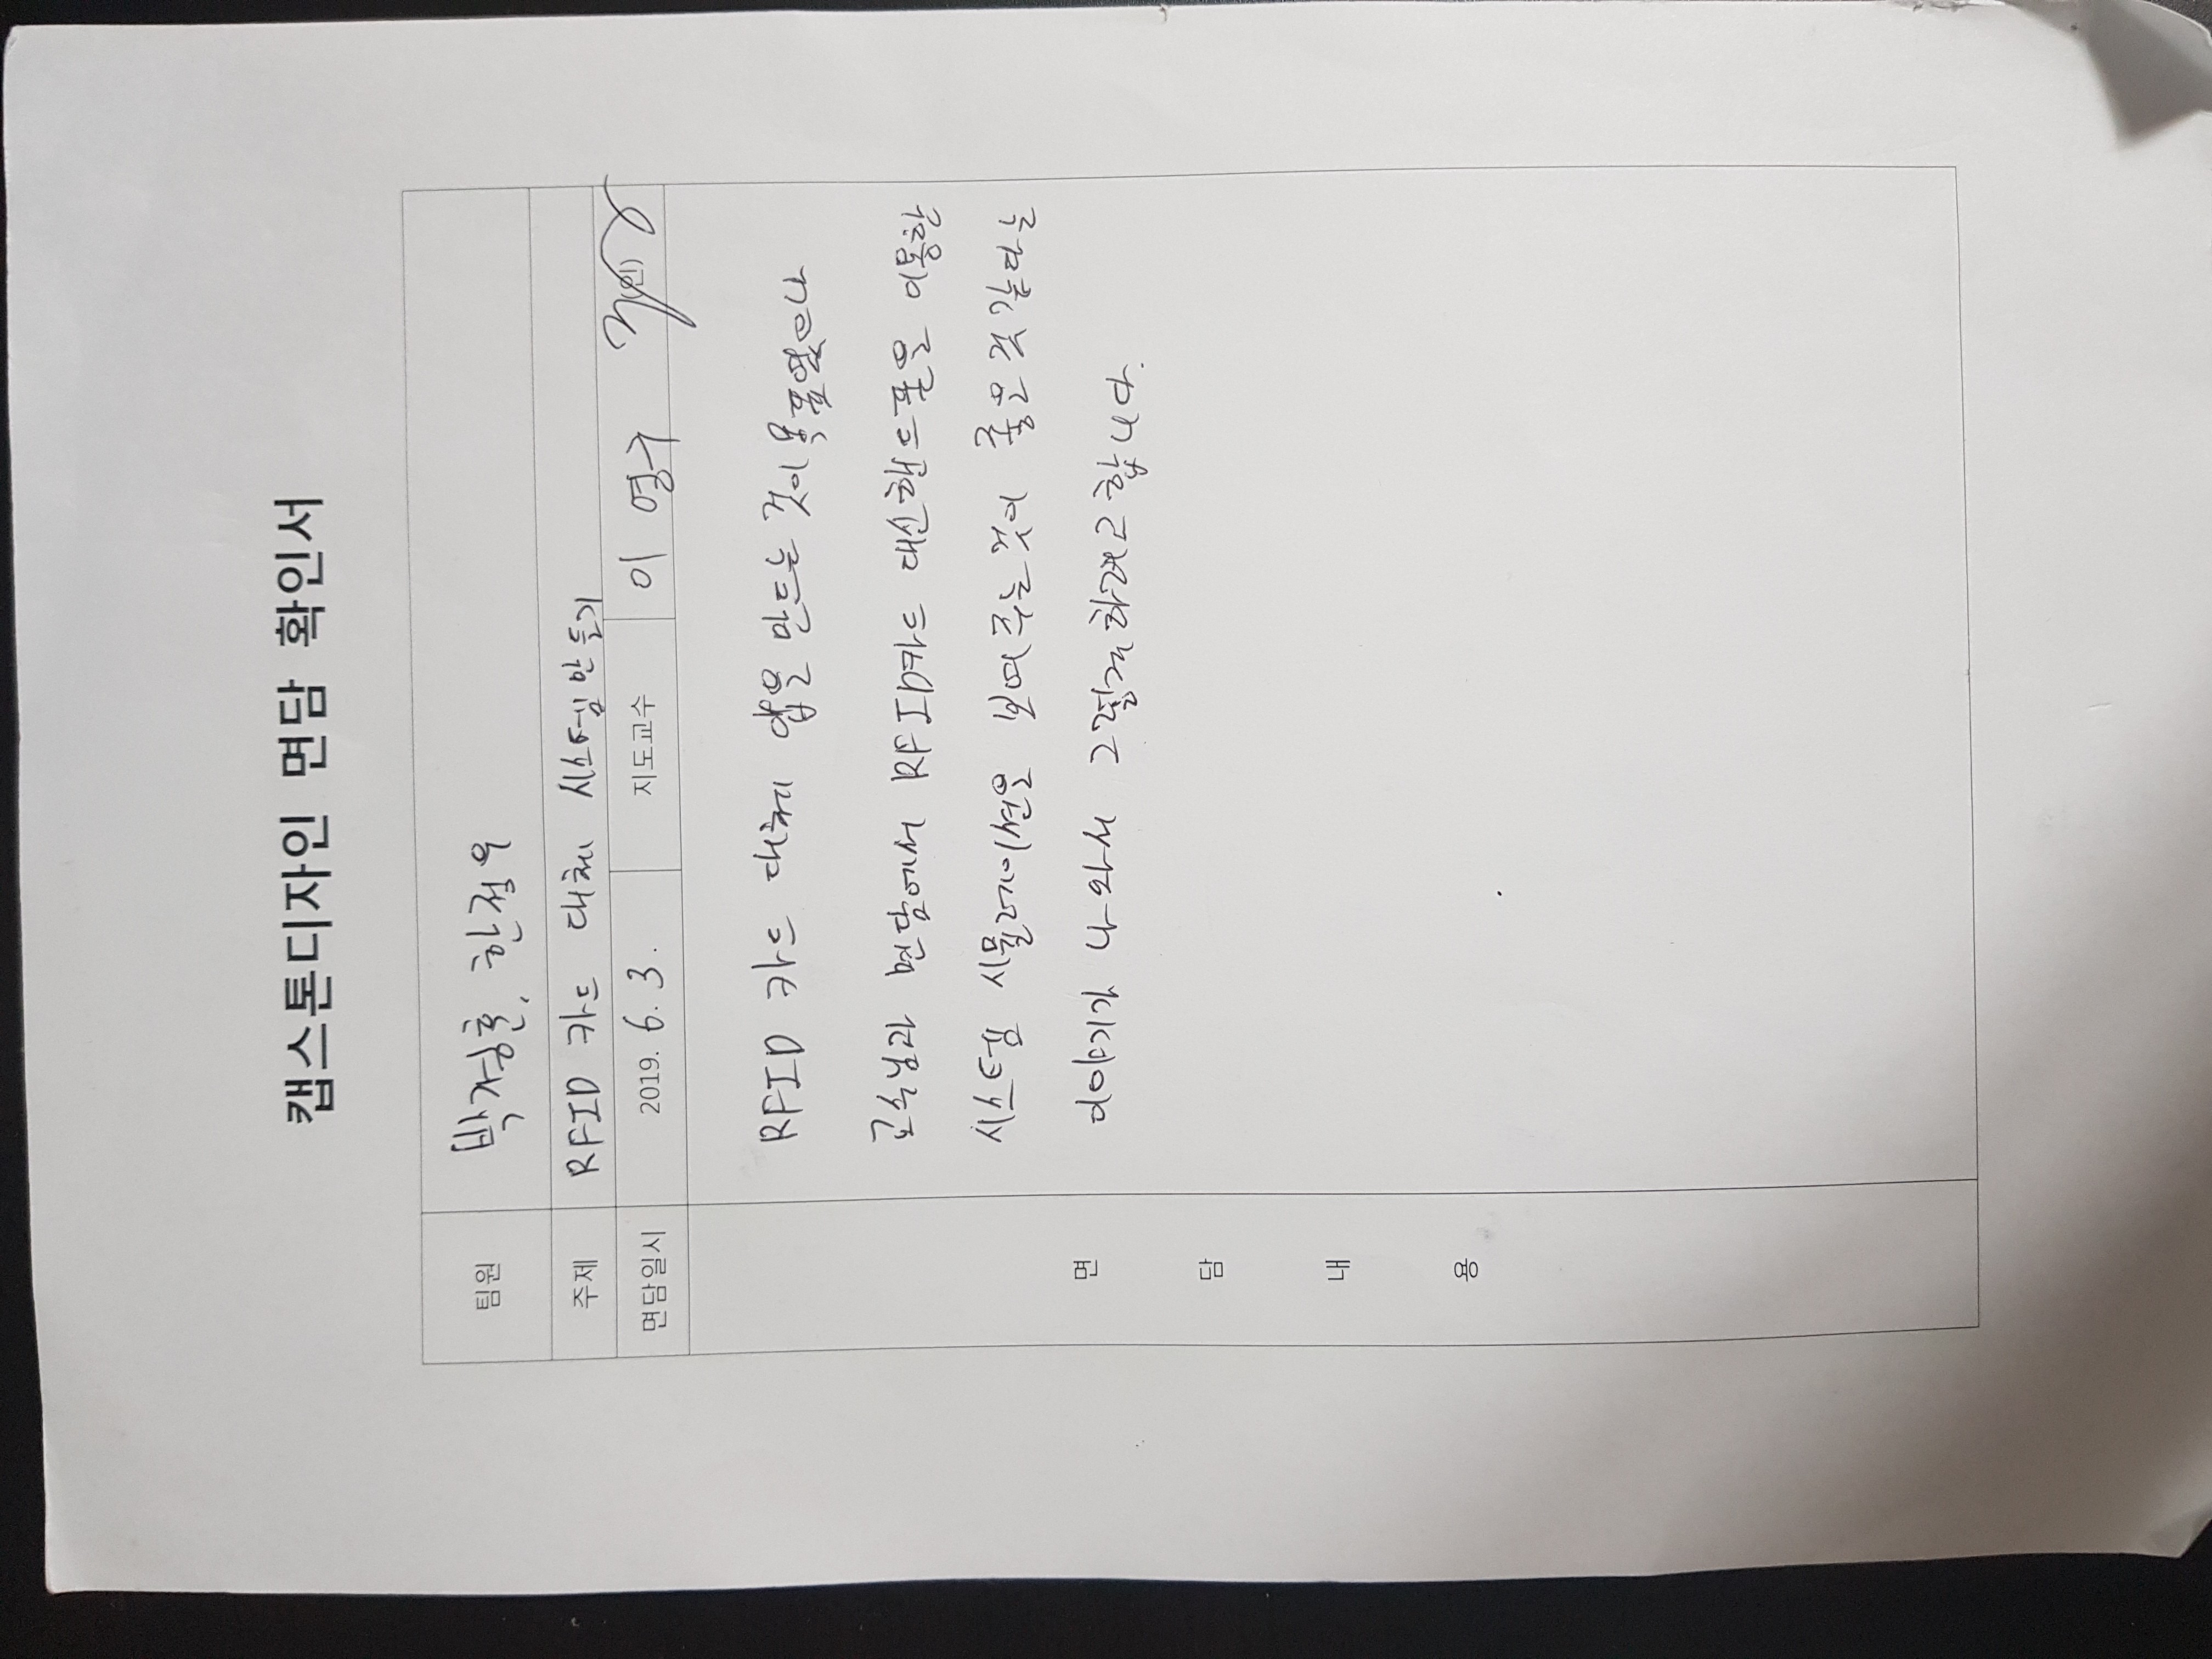 캡스톤디자인 면담 확인서
팀원 박정훈, 한정우
주제 RFID 카드 대체 시스템 만들기
면담일시 2019. 6. 3. 지도교수 이 영구 (인)
면담내용
RFID 카드 대체 앱을 만드는 것이 목표였으나
교수님과 면담에서 RFID카드 대신 핸드폰을 이용한
시스템 시뮬레이션을 보여주는 것이 좋은 것 같다는
이야기가 나와서 그렇게 하려고 합니다.